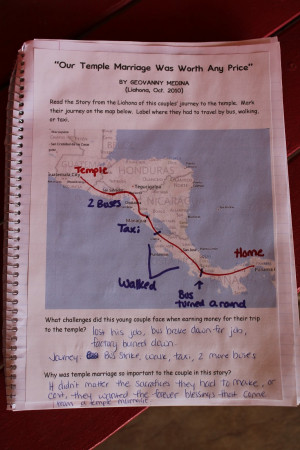 "Our Temple Marriage Was Worth Any Price"
BY GEOVANNY MEDINA
(Liahona, Oct. 2010)
Read the Story from the Liahona of this couples' journey to the temple. Mark
their journey on the map below. Label where they had to travel by bus, walking,
or taxi.
GUATEMALA
HONDURAS
Temple
Guatemala City
Tegucigalpa
2 Buses
NICARAGUA
Taxi
Home
Walked
Bus
turned around
What challenges did this young couple face when earning money for their trip
to the temple? lost his job, bus broke down for job,
factory burned down.
Journey: Bus Strike, walk, taxi, 2 more buses
Why was temple marriage so important to the couple in this story?
It didn't matter the sacrifices they had to make, or
cost, they wanted the forever blessings that come
from a temple marriage.